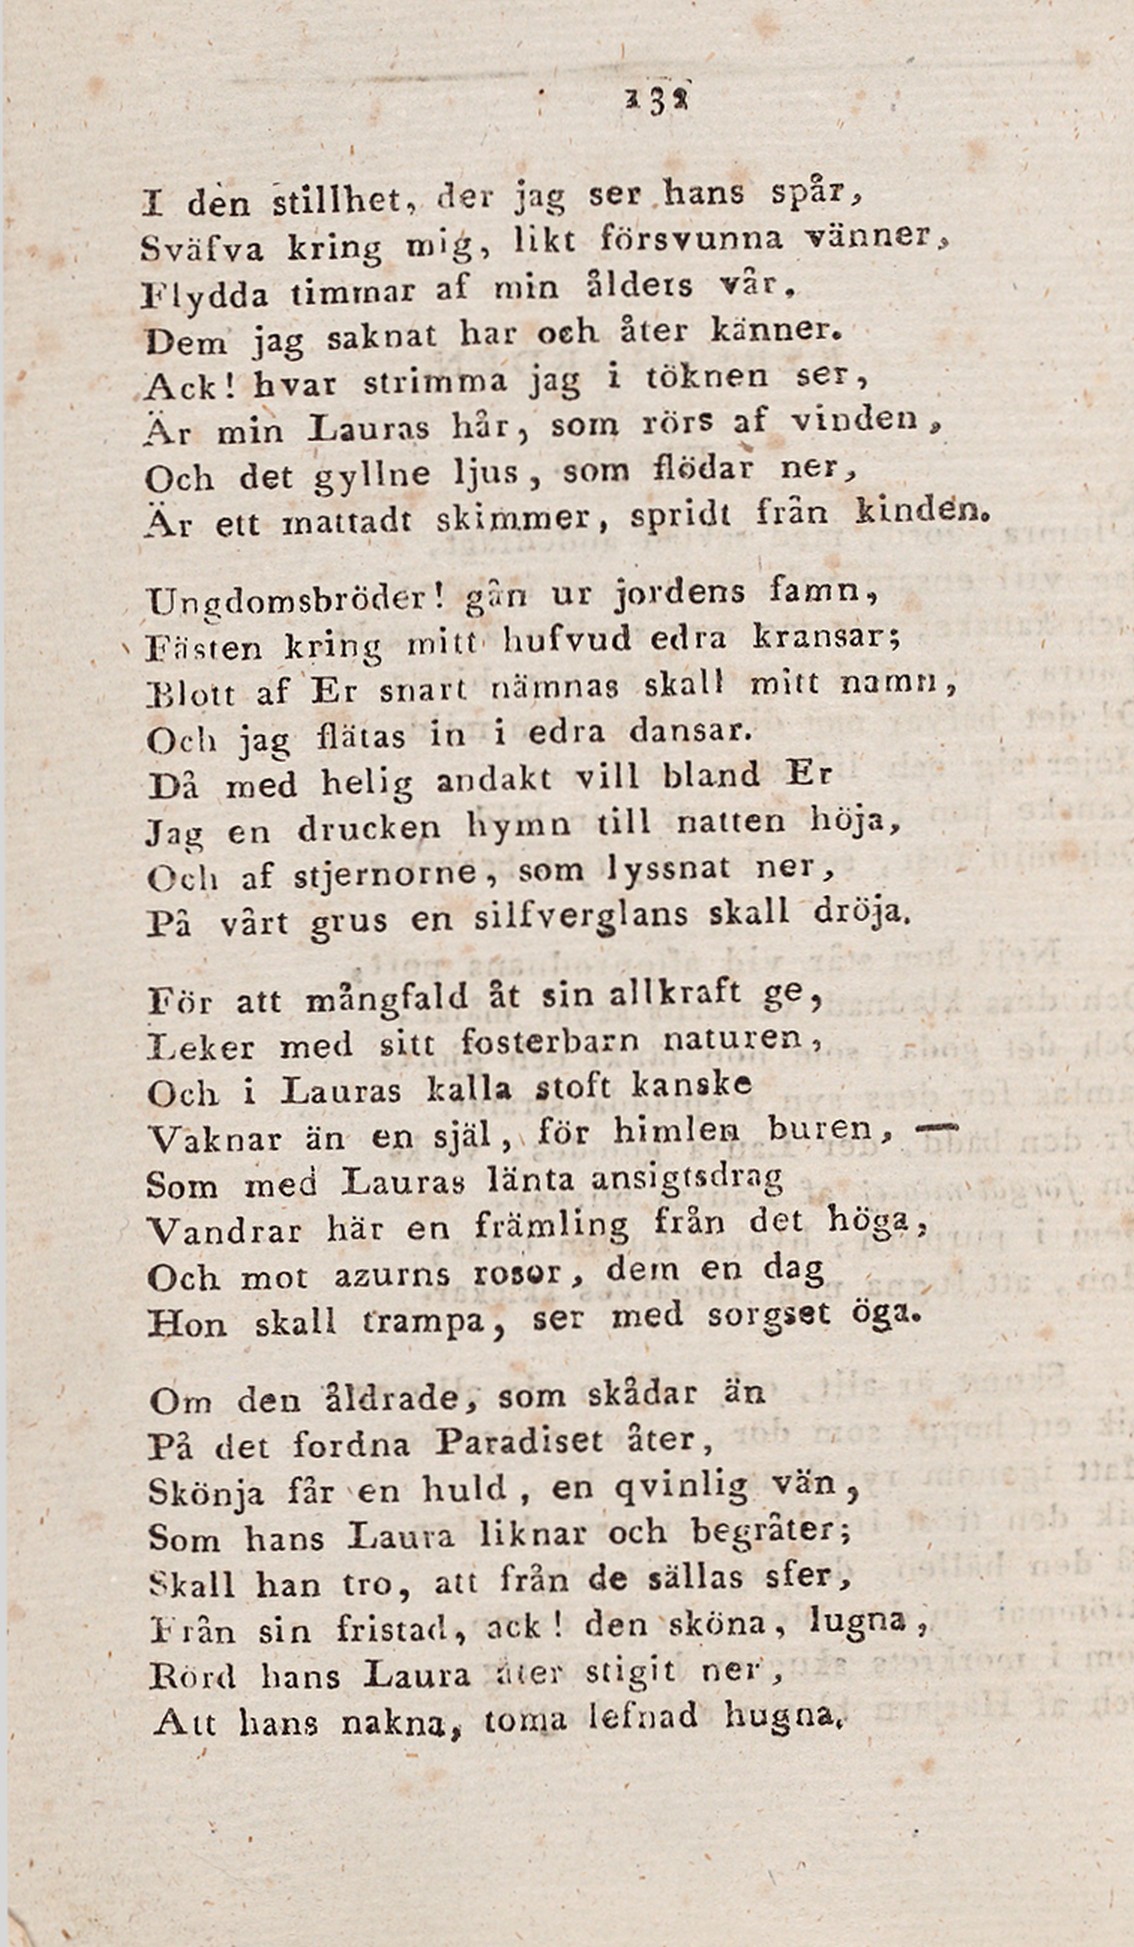 132
I den stillhet, der jag ser hans spår,
Sväfva kring mig, likt försvunna vänner,
Flydda timmar af min ålders vår,
Dem jag saknat har och åter känner.
Ack! hvar strimma jag i töknen ser,
Är min Lauras hår, som rörs af vinden,
Och det gyllne ljus, som flödar ner,
Är ett mattadt skimmer, spridt från kinden.
Ungdomsbröder! gån ur jordens famn,
Fästen kring mitt hufvud edra kransar;
Blott af Er snart nämnas skall mitt namn,
Och jag flätas in i edra dansar.
Då med helig andakt vill bland Er
Jag en drucken hymn till natten höja,
Och af stjernorne, som lyssnat ner,
På vårt grus en silfverglans skall dröja.
För att mångfald åt sin allkraft ge,
Leker med sitt fosterbarn naturen,
Och i Lauras kalla stoft kanske
Vaknar än en själ, för himlen buren, —
Som med Lauras länta ansigtsdrag
Vandrar här en främling från det höga,
Och mot azurns rosor, dem en dag
Hon skall trampa, ser med sorgset öga.
Om den åldrade, som skådar än
På det fordna Paradiset åter,
Skönja får en huld, en qvinlig vän,
Som hans Laura liknar och begråter;
Skall han tro, att från de sällas sfer,
Från sin fristad, ack! den sköna, lugna,
Rörd hans Laura åter stigit ner,
Att hans nakna, toma lefnad hugna.